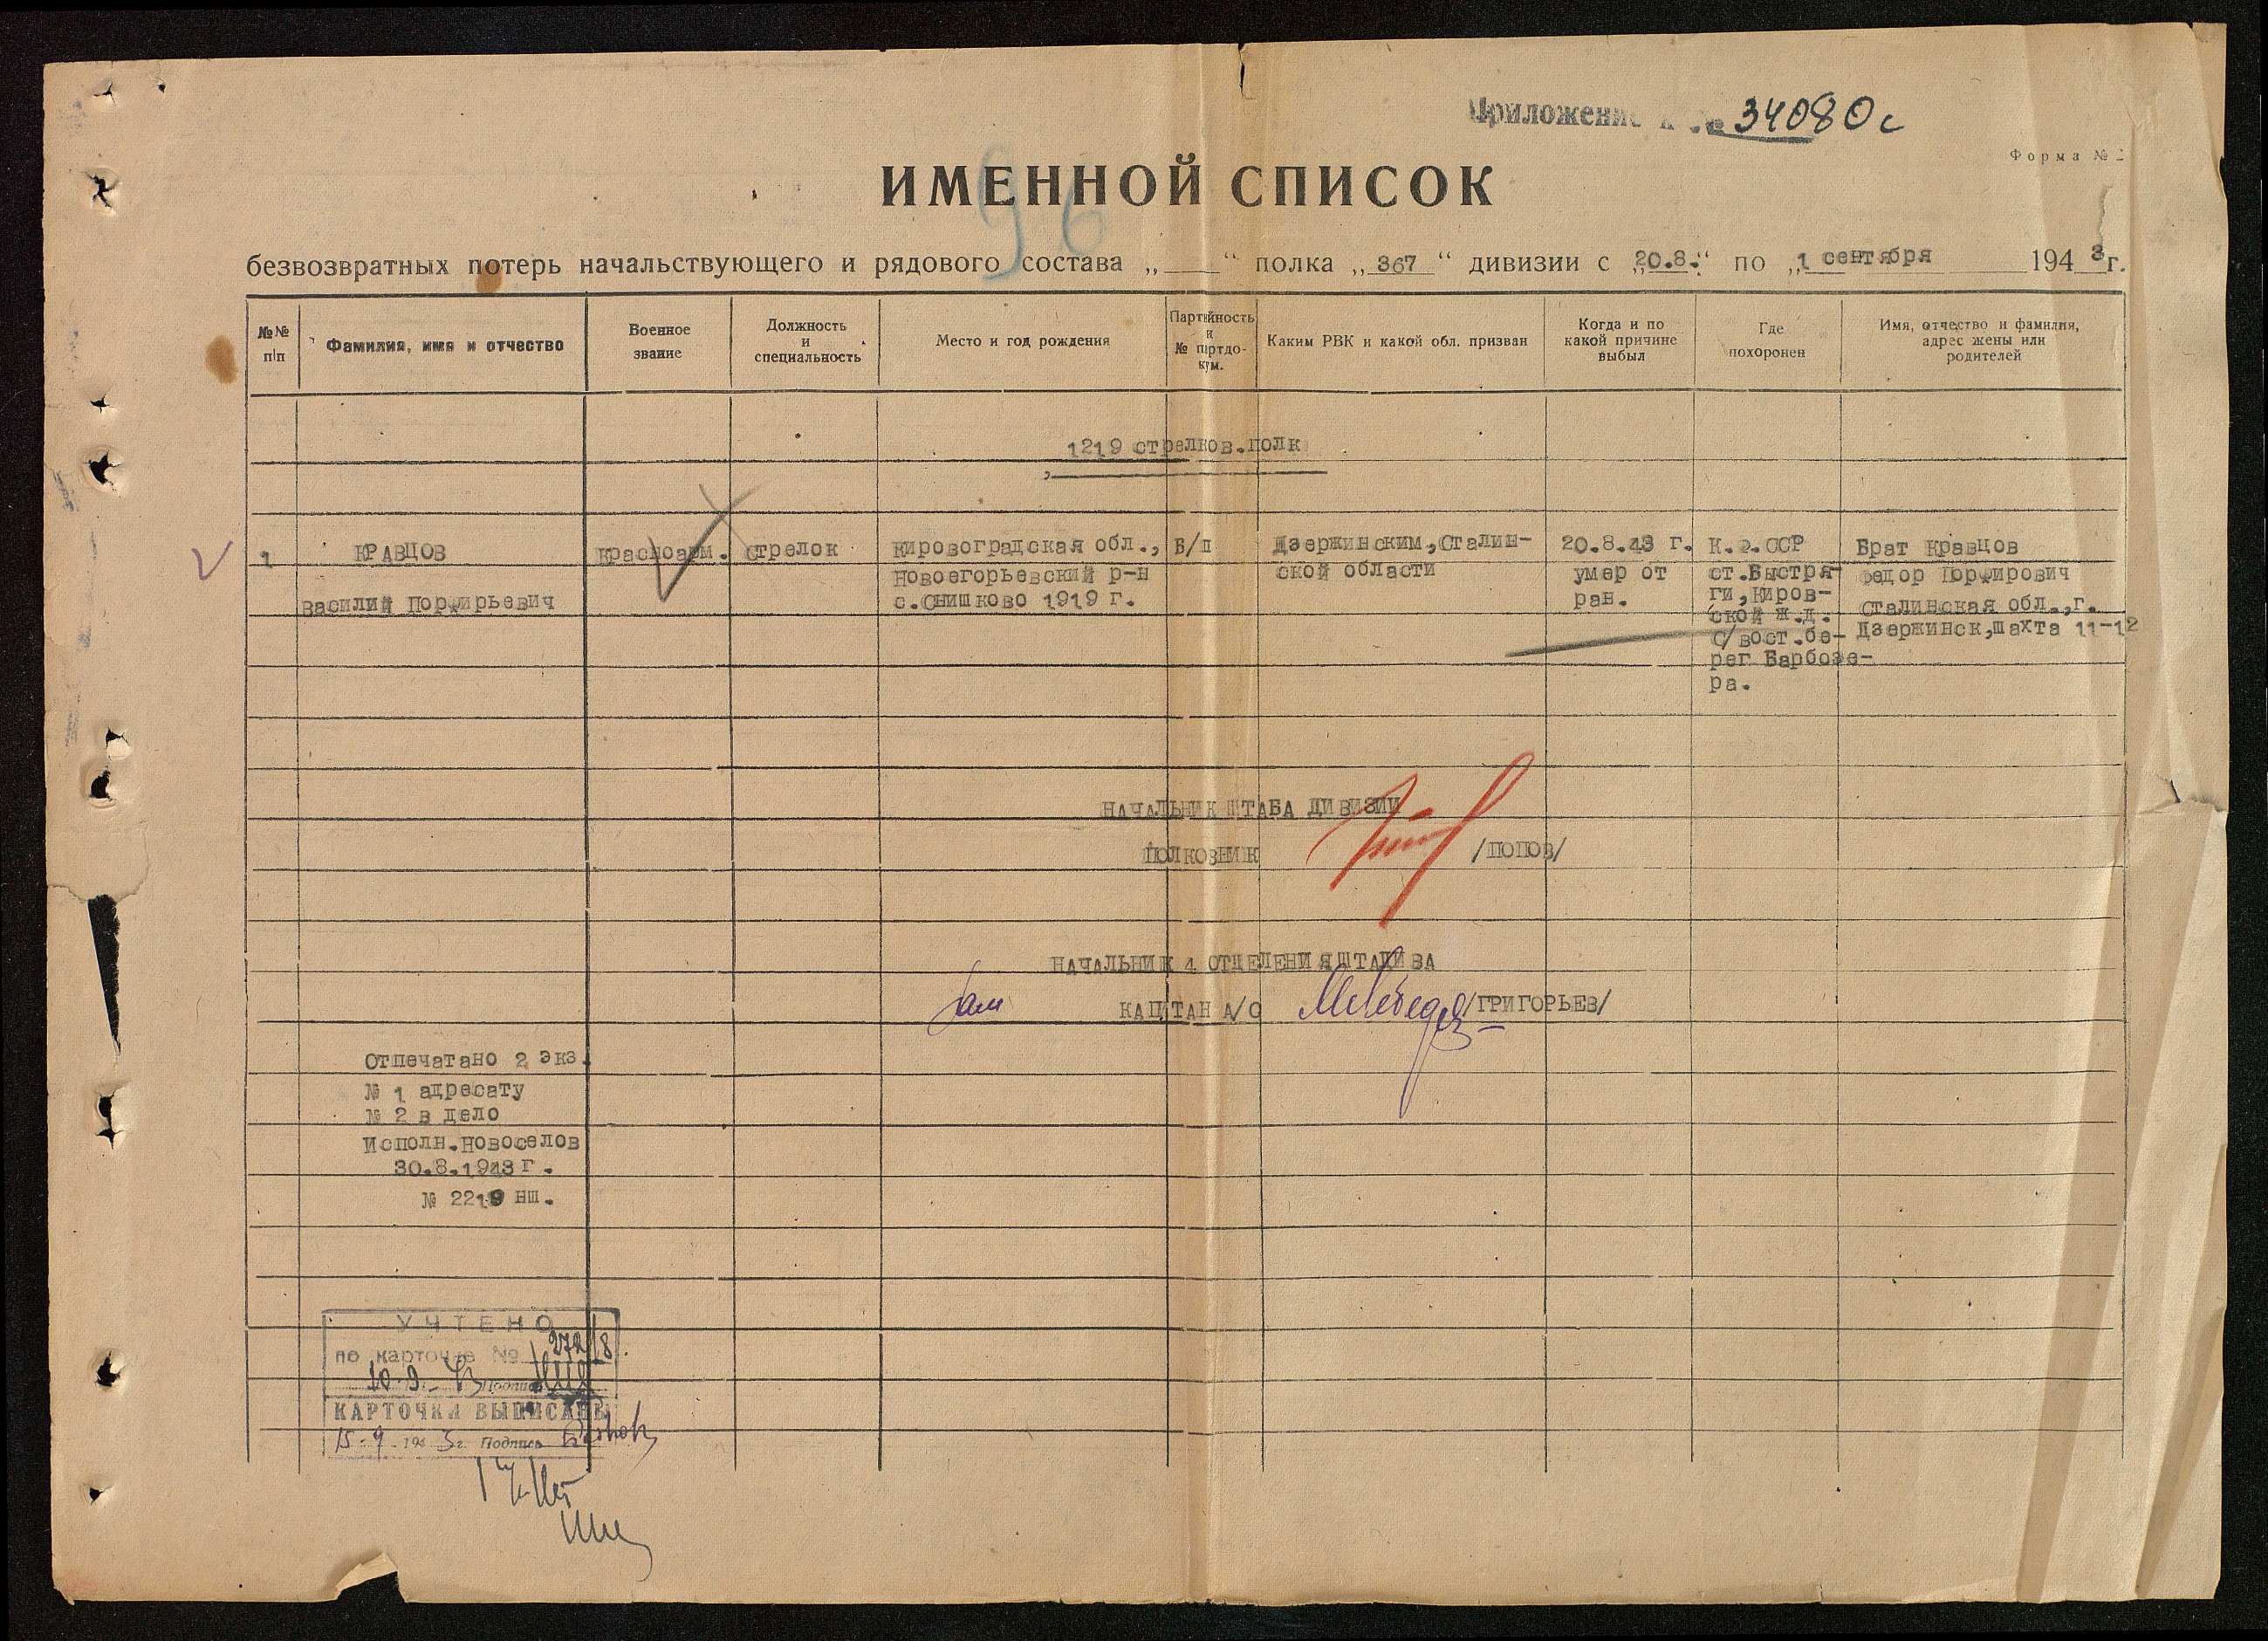 Приложение к № 34080с
Форма № 2
96
ИМЕННОЙ СПИСОК
безвозвратных потерь начальствующего и рядового состава „ “ полка „367“ дивизии с „20.8.“ по „1 сентября 1943 г.
№№ п/п
Фамилия, имя и отчество
Военное звание
Должность и специальность
Место и год рождения
Партийность и № партдокум.
Каким РВК и какой обл. призван
Когда и по какой причине выбыл
Где похоронен
Имя, отчество и фамилия, адрес жены или родителей
1219 стрелков.полк
1
КРАВЦОВ
Василий Порфирьевич
красноарм.
стрелок
Кировоградская обл.,
Новоегорьевский р-н
с.Снишково 1919 г.
Б/п
Дзержинским,Сталин-
ской области
20.8.43 г.
умер от
ран.
К.Ф.ССР
ст.Быстря-
ги,Киров-
ской ж.д.
С/вост.бе-
рег Барбозе-
ра.
Брат Кравцов
Федор Порфирович
Сталинская обл.,г.
Дзержинск,шахта 11-12
НАЧАЛЬНИК ШТАБА ДИВИЗИИ
ПОЛКОВНИК /ПОПОВ/
НАЧАЛЬНИК 4 ОТДЕЛЕНИЯ ШТАДИВА
Зам КАПИТАН А/С /ГРИГОРЬЕВ/
Отпечатано 2 экз.
№ 1 адресату
№ 2 в дело
Исполн.Новоселов
30.8.1943 г.
№ 2219 нш.
УЧТЕНО
по карточке №
10.9.43 Подпись
КАРТОЧКИ ВЫПИСАНЫ
15.9.1943г. Подпись